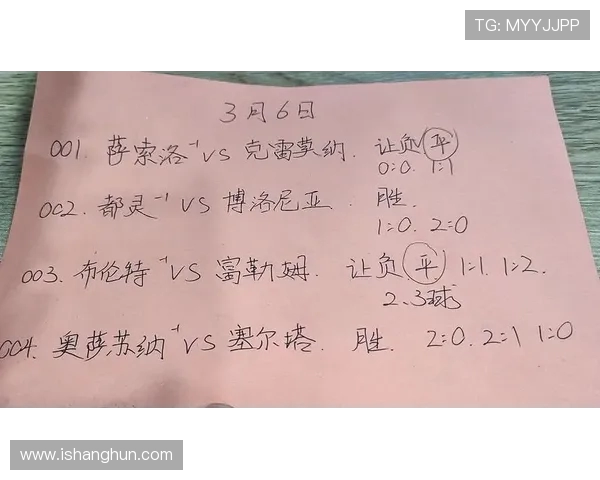 TG: MYYJJPP
3月6日
001. 萨索洛-1 VS 克雷莫纳. 让负 平
0:0. 1:1
002. 都灵-1 VS 博洛尼亚. 胜.
1:0. 2:0
003. 布伦特-1 VS 富勒姆. 让负 平 1:1. 1:2.
2、3球
004. 奥萨苏纳-1 VS 塞尔塔. 胜. 2:0. 2:1 1:0
www.ishanghun.com